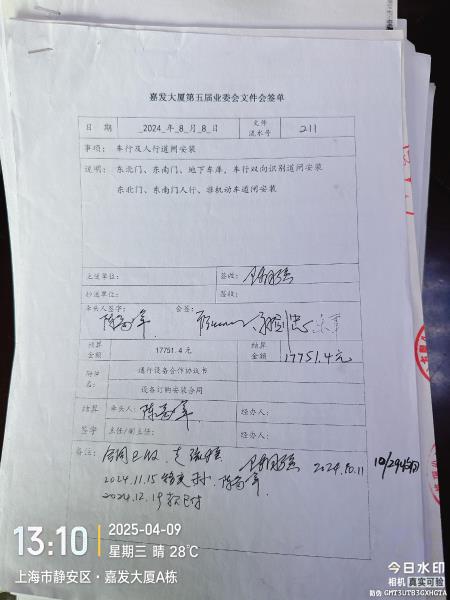 嘉发大厦第五届业委会文件会签单
日 期 2024 年 8 月 8 日 文件流水号 211
事项: 车行及人行道闸安装
说明: 东北门、东南门、地下车库,车行双向识别道闸安装
东北门、东南门人行、非机动车道闸安装
主送单位: 签收:
抄送单位: 签收:
牵头人签字: 会签:
预算金额 17751.4元 结算金额 17751.4元
附件名: 通行设备合作协议书
设备订购安装合同
结算签字 牵头人: 经办人:
主任/副主任: 经办人:
备注: 合同已收 2024.10.11 10/29
2024.11.15
2024.12.19 款已付
13:10 2025-04-09
星期三 晴 28℃
上海市静安区·嘉发大厦A栋
今日水印
相机 真实可验
防伪 GMT3UTB3GXHGTA